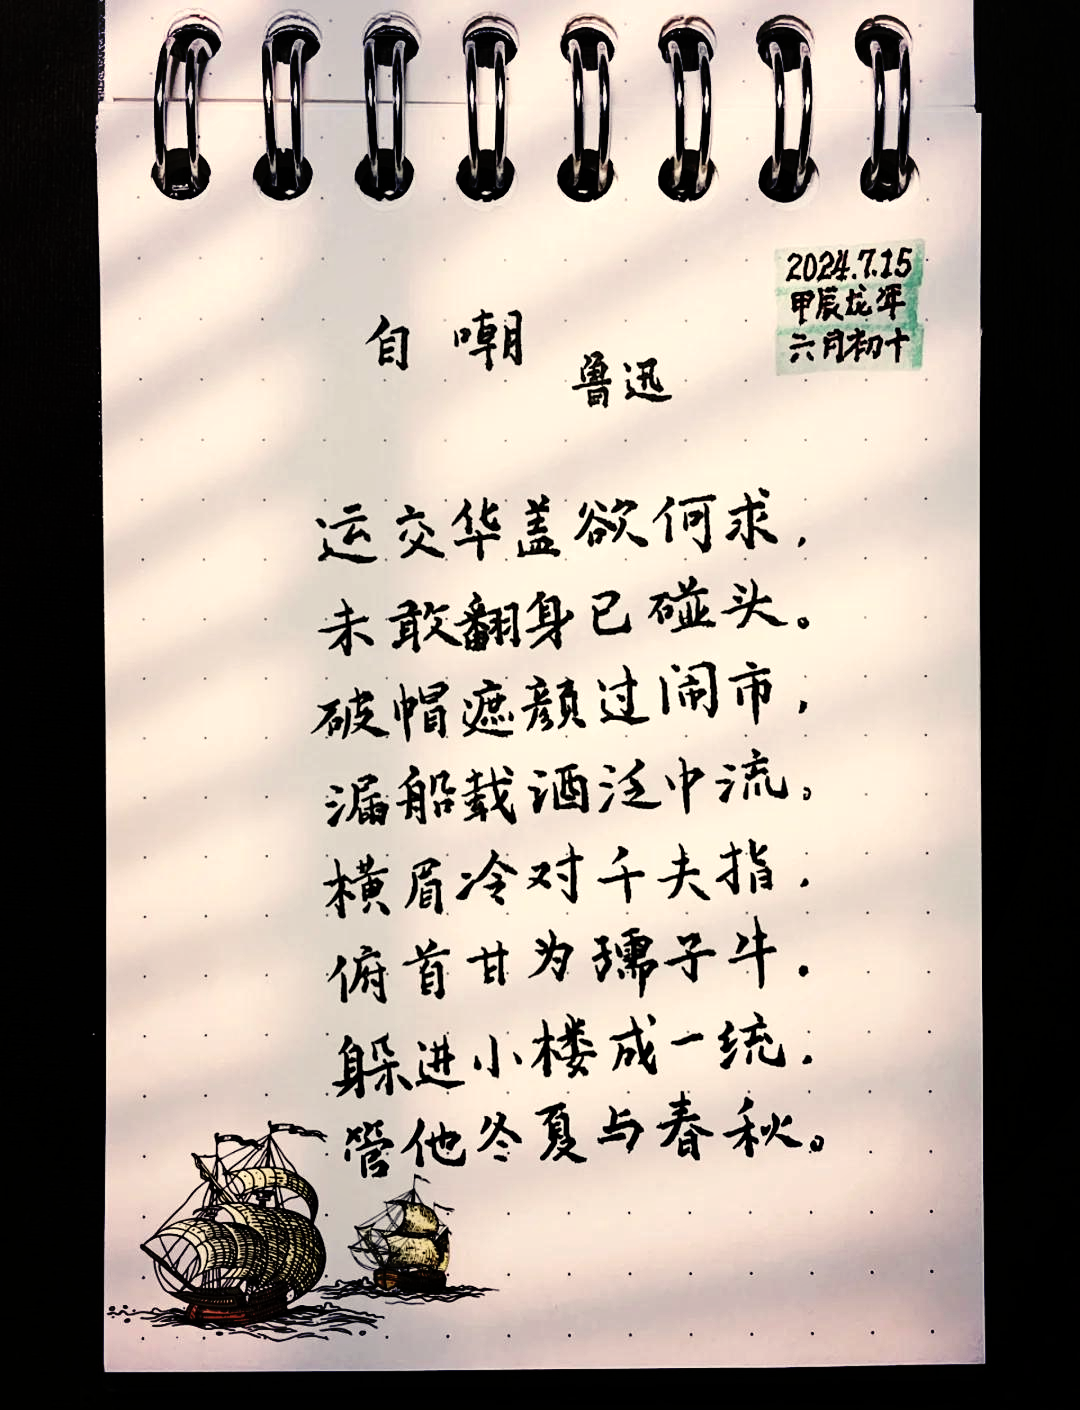 2024.7.15
甲辰龙年
六月初十
自嘲
鲁迅
运交华盖欲何求，
未敢翻身已碰头。
破帽遮颜过闹市，
漏船载酒泛中流。
横眉冷对千夫指，
俯首甘为孺子牛.
躲进小楼成一统，
管他冬夏与春秋。